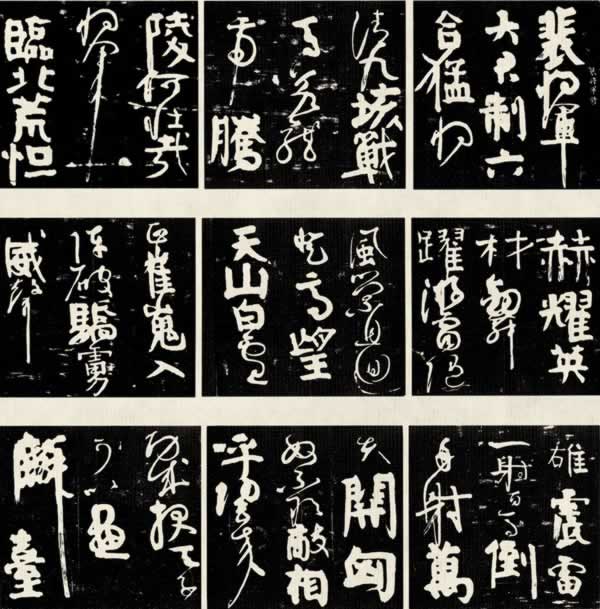 裴將軍
大君制六
合猛將
清九垓戰
馬若龍
虎騰
陵何壯哉
將軍
臨北荒怛
赫耀英
材劍舞
躍游電隨
風縈且迴
登高望
天山白雲
正崔嵬入
陣破驕虜
威聲
雄震雷
一射百馬倒
再射萬
夫開匈
奴不敢敵相
呼歸去來
功成報天子
可以畫
麟臺